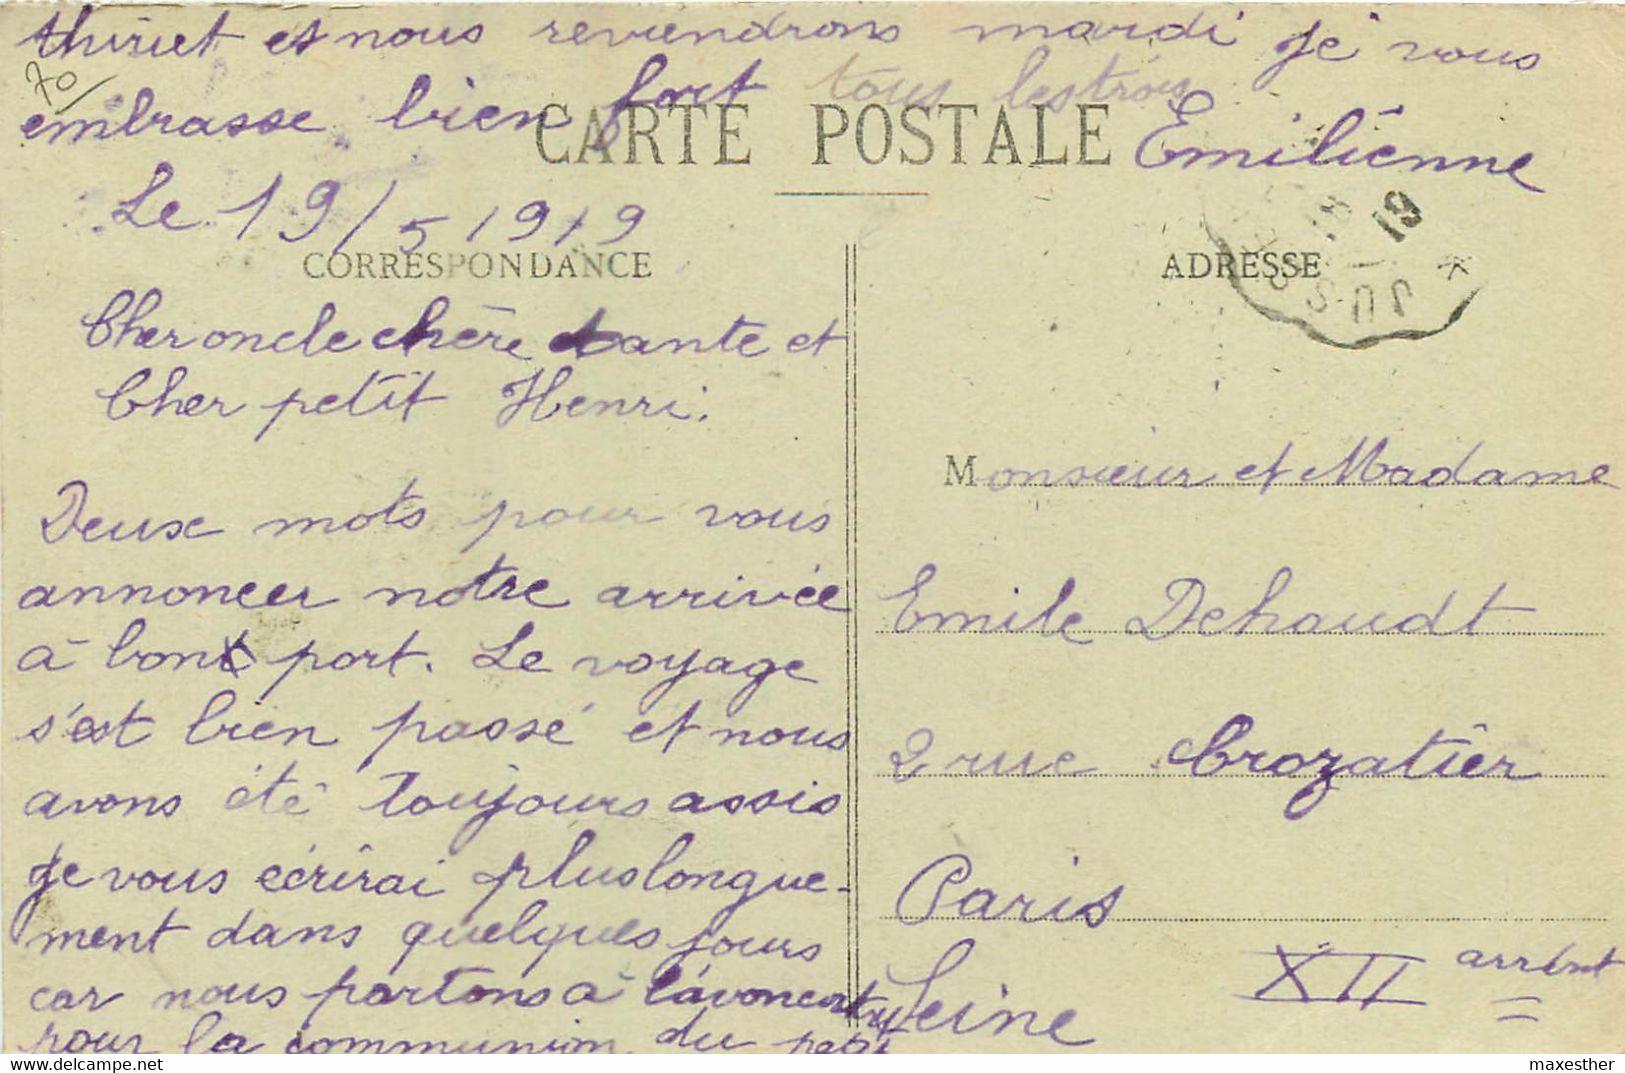 thiriet et nous reviendrons mardi je vous
embrasse bien fort tous les trois
70
CARTE POSTALE
Emilienne
Le 19/5 1919
19
CORRESPONDANCE
ADRESSE
Cher oncle chère tante et
Cher petit Henri.
Deux mots pour vous
annoncer notre arrivée
à bon port. Le voyage
s'est bien passé et nous
avons été toujours assis
Je vous écrirai plus longue-
ment dans quelques jours
car nous partons à
pour la communion du petit
Monsieur et Madame
Emile Dehaudt
2 rue Crozatier
Paris
XII arrént
Seine
maxesther